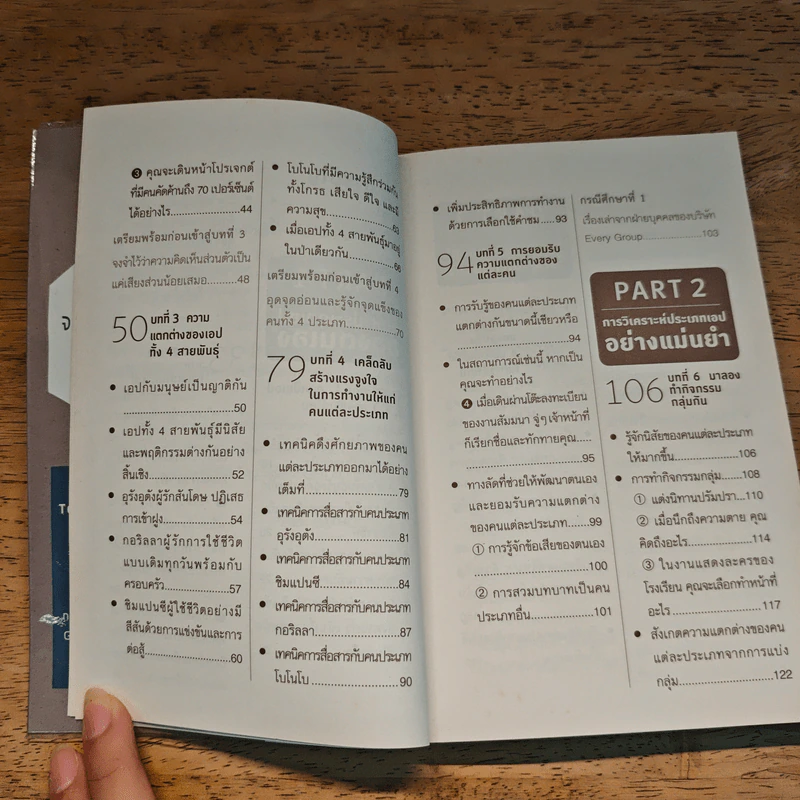 ❸ คุณจะเดินหน้าโปรเจกต์
ที่มีคนคัดค้านถึง 70 เปอร์เซ็นต์
ได้อย่างไร....................44
เตรียมพร้อมก่อนเข้าสู่บทที่ 3
จงจำไว้ว่าความคิดเห็นส่วนตัวเป็น
แค่เสียงส่วนน้อยเสมอ..........48
50 บทที่ 3 ความ
แตกต่างของเอป
ทั้ง 4 สายพันธุ์
• เอปกับมนุษย์เป็นญาติกัน
....................50
• เอปทั้ง 4 สายพันธุ์มีนิสัย
และพฤติกรรมต่างกันอย่าง
สิ้นเชิง....................52
• อุรังอุตังผู้รักสันโดษ ปฏิเสธ
การเข้าฝูง....................54
• กอริลลาผู้รักการใช้ชีวิต
แบบเดิมทุกวันพร้อมกับ
ครอบครัว....................57
• ชิมแปนซีผู้ใช้ชีวิตอย่างมี
สีสันด้วยการแข่งขันและการ
ต่อสู้....................60
• โบโนโบที่มีความรู้สึกร่วมกัน
ทั้งโกรธ เสียใจ ดีใจ และมี
ความสุข....................63
• เมื่อเอปทั้ง 4 สายพันธุ์มาอยู่
ในป่าเดียวกัน....................66
เตรียมพร้อมก่อนเข้าสู่บทที่ 4
อุดจุดอ่อนและรู้จักจุดแข็งของ
คนทั้ง 4 ประเภท....................70
79 บทที่ 4 เคล็ดลับ
สร้างแรงจูงใจ
ในการทำงานให้แก่
คนแต่ละประเภท
• เทคนิคดึงศักยภาพของคน
แต่ละประเภทออกมาได้อย่าง
เต็มที่....................79
• เทคนิคการสื่อสารกับคนประเภท
อุรังอุตัง....................81
• เทคนิคการสื่อสารกับคนประเภท
ชิมแปนซี....................84
• เทคนิคการสื่อสารกับคนประเภท
กอริลลา....................87
• เทคนิคการสื่อสารกับคนประเภท
โบโนโบ....................90
• เพิ่มประสิทธิภาพการทำงาน
ด้วยการเลือกใช้คำชม.....93
94 บทที่ 5 การยอมรับ
ความแตกต่างของ
แต่ละคน
• การรับรู้ของคนแต่ละประเภท
แตกต่างกันขนาดนี้เชียวหรือ
....................94
• ในสถานการณ์เช่นนี้ หากเป็น
คุณจะทำอย่างไร
❹ เมื่อเดินผ่านโต๊ะลงทะเบียน
ของงานสัมมนา จู่ๆ เจ้าหน้าที่
ก็เรียกชื่อและทักทายคุณ.....
....................95
• ทางลัดที่ช่วยให้พัฒนาตนเอง
และยอมรับความแตกต่าง
ของคนแต่ละประเภท........99
① การรู้จักข้อเสียของตนเอง
....................100
② การสวมบทบาทเป็นคน
ประเภทอื่น....................101
กรณีศึกษาที่ 1
เรื่องเล่าจากฝ่ายบุคคลของบริษัท
Every Group....................103
PART 2
การวิเคราะห์ประเภทเอป
อย่างแม่นยำ
106 บทที่ 6 มาลอง
ทำกิจกรรม
กลุ่มกัน
• รู้จักนิสัยของคนแต่ละประเภท
ให้มากขึ้น....................106
• การทำกิจกรรมกลุ่ม......108
① แต่งนิทานปรัมปรา...110
② เมื่อนึกถึงความตาย คุณ
คิดถึงอะไร....................114
③ ในงานแสดงละครของ
โรงเรียน คุณจะเลือกทำหน้าที่
อะไร....................117
• สังเกตความแตกต่างของคน
แต่ละประเภทจากการแบ่ง
กลุ่ม....................122